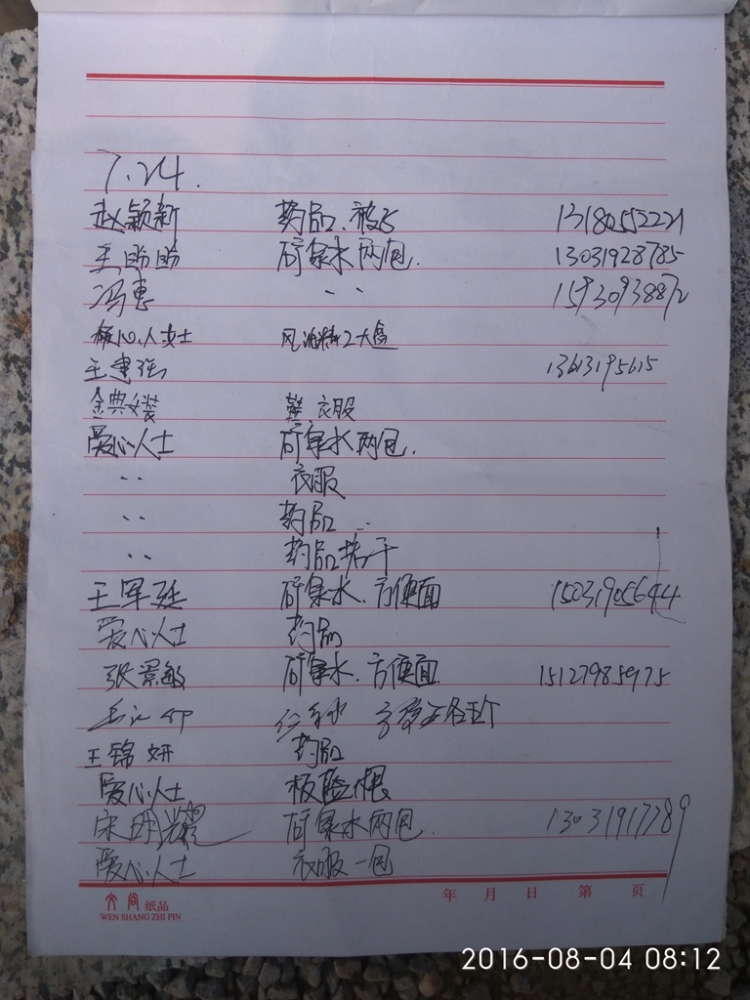 7.24.
赵颖新 药品、被子 13180552221
王盼盼 矿泉水两包. 13031928785
冯惠 〃 15930938872
爱心人士 风油精2大盒
王建强 13613195615
金典女装 鞋 衣服
爱心人士 矿泉水两包.
〃 衣服
〃 药品
〃 药品若干
王军廷 矿泉水、方便面 15031905644
爱心人士 药品
张景敏 矿泉水、方便面 15127985975
王锦妍 药品
爱心人士
宋明耀 矿泉水两包. 13031917789
爱心人士 衣服一包
文尚纸品 年 月 日 第 页
WEN SHANG ZHI PIN
2016-08-04 08:12